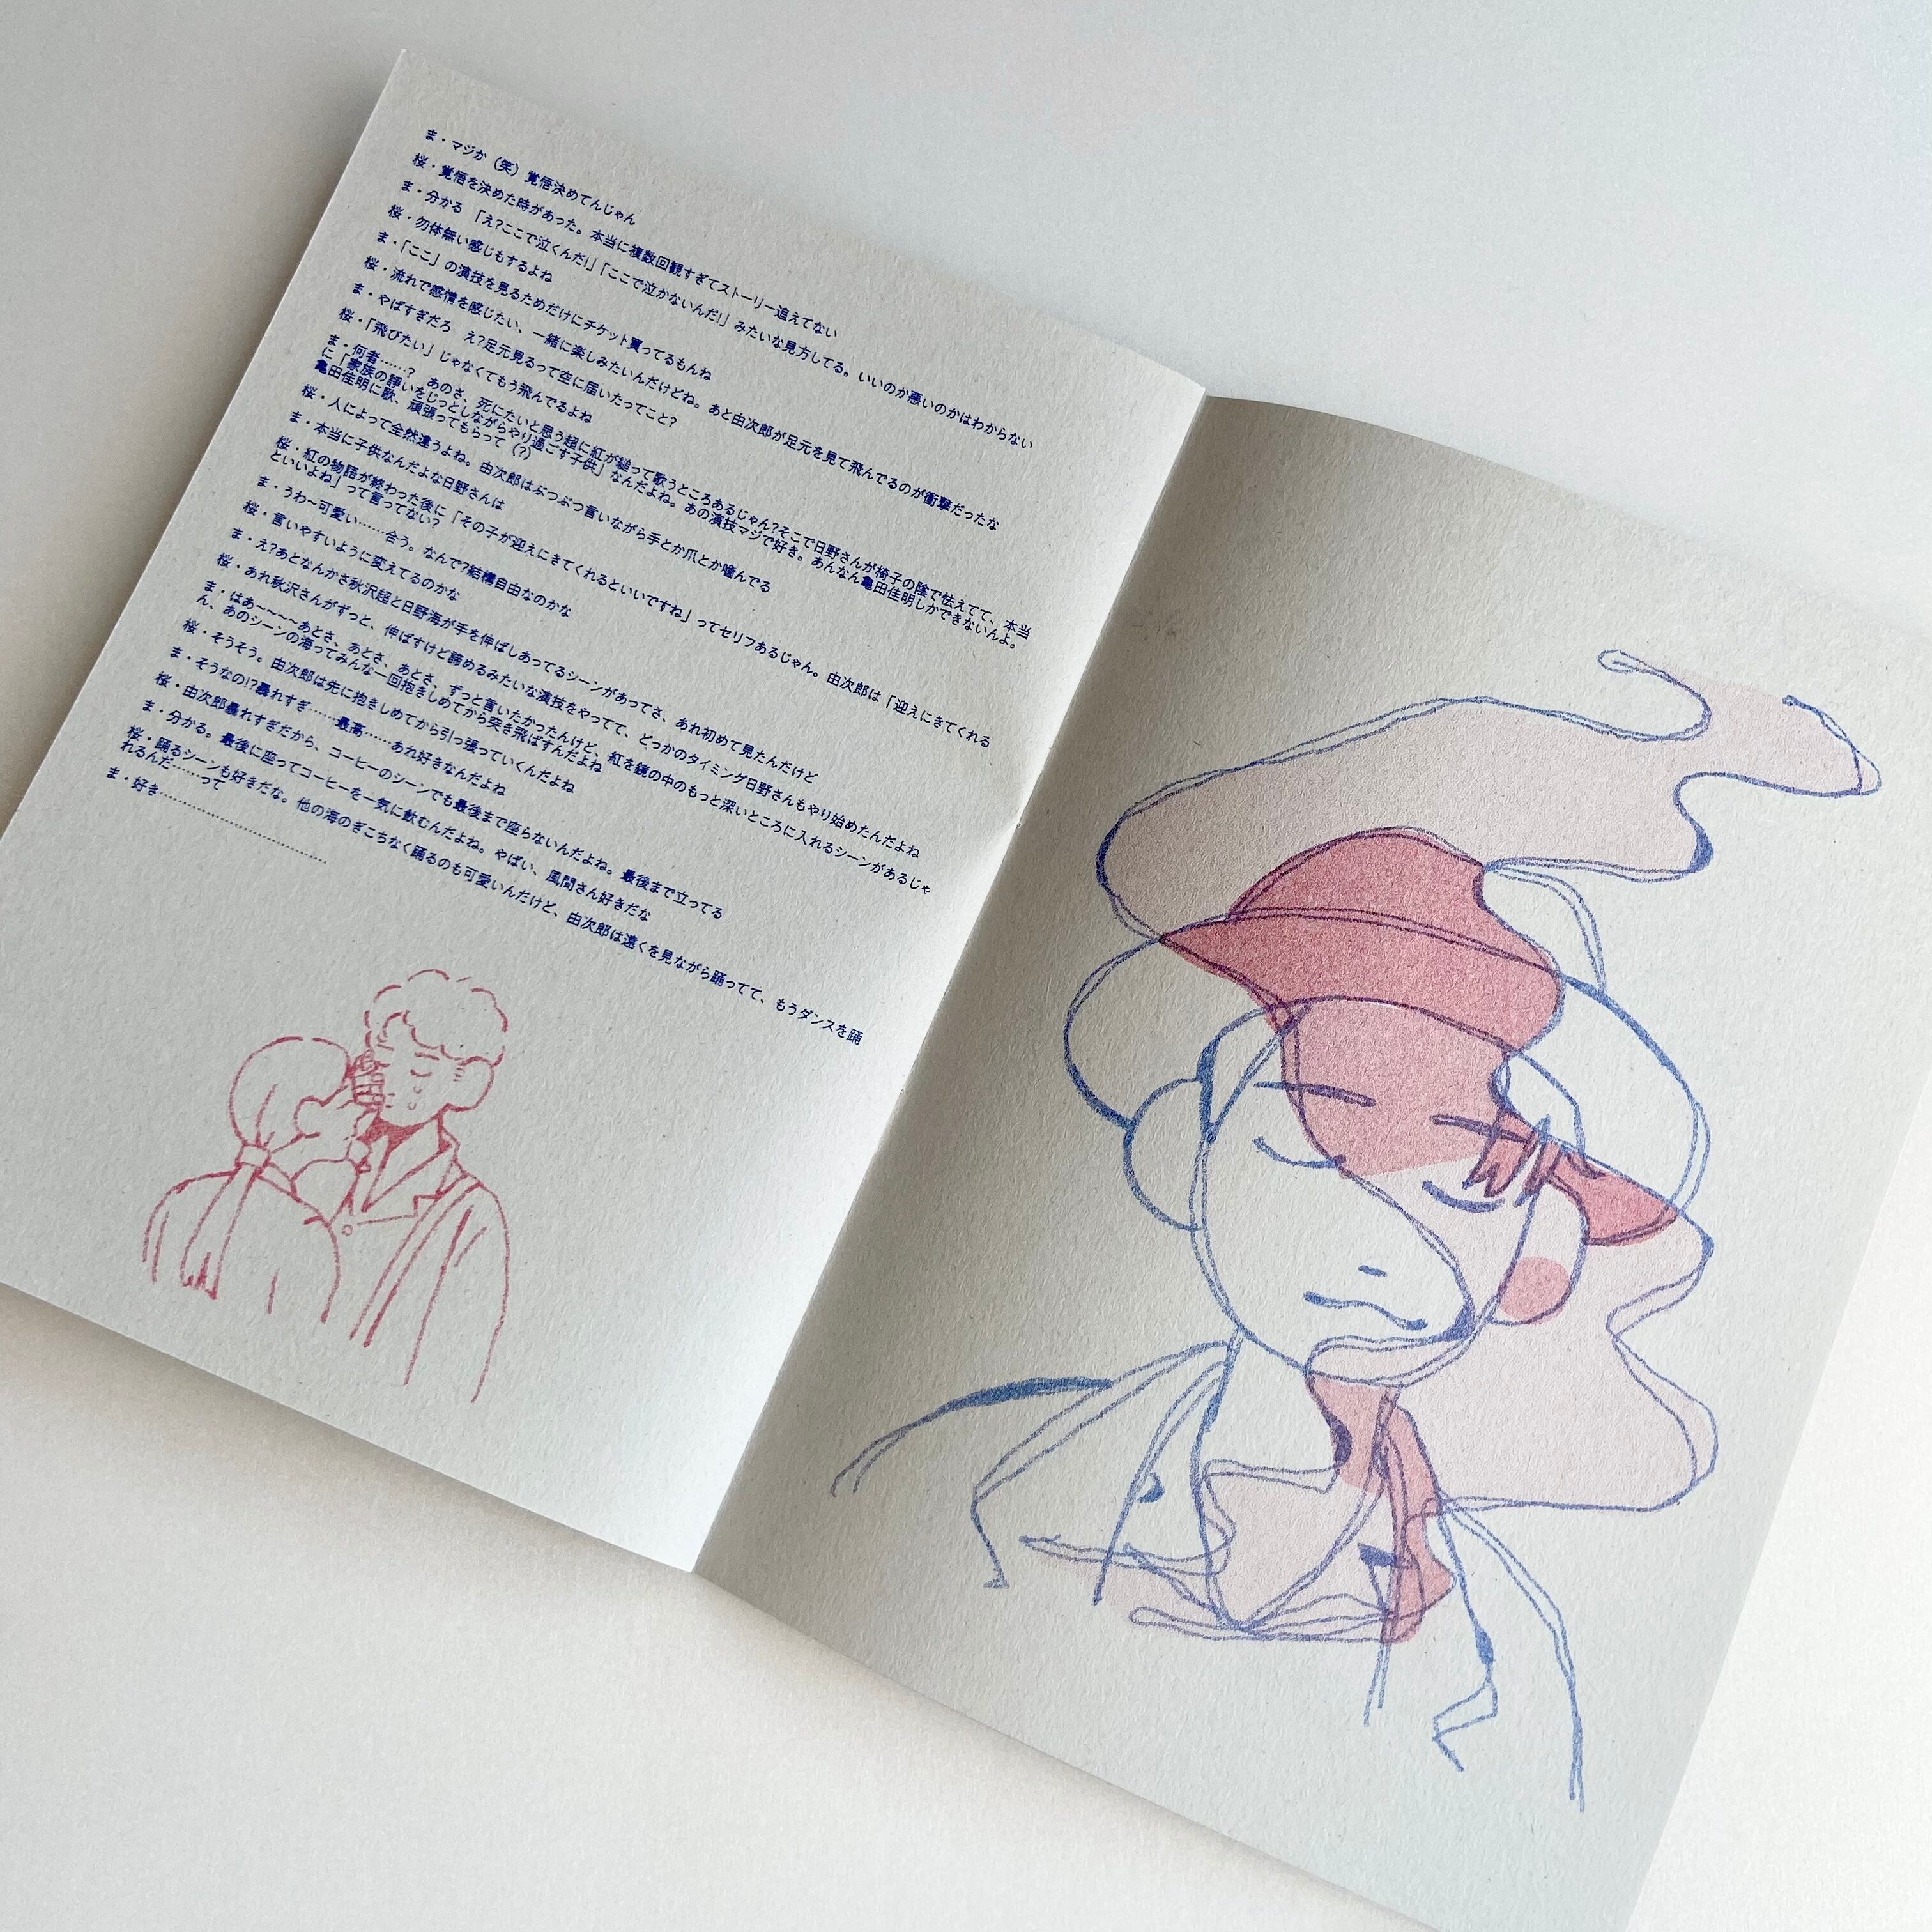 ま・マジか（笑）覚悟決めてんじゃん
桜・覚悟を決めた時があった。本当に複数回観すぎてストーリー追えてない
ま・分かる　「え?ここで泣くんだ!」「ここで泣かないんだ!」みたいな見方してる。いいのか悪いのかはわからない
桜・勿体無い感じもするよね
ま・「ここ」の演技を見るためだけにチケット買ってるもんね
桜・流れで感情を感じたい、一緒に楽しみたいんだけどね。あと由次郎が足元を見て飛んでるのが衝撃だったな
ま・やばすぎだろ　え?足元見るって空に届いたってこと?
桜・「飛びたい」じゃなくてもう飛んでるよね
ま・何者……?　あのさ、死にたいと思う超に紅が縋って歌うところあるじゃん?そこで日野さんが椅子の陰で怯えてて、本当
に「家族の諍いをじっとしながらやり過ごす子供」なんだよね。あの演技マジで好き。あんなん亀田佳明しかできないんよ。
亀田佳明に歌、頑張ってもらって（?）
桜・人によって全然違うよね。由次郎はぶつぶつ言いながら手とか爪とか噛んでる
ま・本当に子供なんだよな日野さんは
桜・紅の物語が終わった後に「その子が迎えにきてくれるといいですね」ってセリフあるじゃん。由次郎は「迎えにきてくれる
といいよね」って言ってない?
ま・うわ〜可愛い……合う。なんで?結構自由なのかな
桜・言いやすいように変えてるのかな
ま・え?あとなんかさ秋沢超と日野海が手を伸ばしあってるシーンがあってさ、あれ初めて見たんだけど
桜・あれ秋沢さんがずっと、伸ばすけど諦めるみたいな演技をやってて、どっかのタイミング日野さんもやり始めたんだよね
ま・はあ〜〜〜〜あとさ、あとさ、あとさ、ずっと言いたかったんけど、紅を鏡の中のもっと深いところに入れるシーンがあるじゃ
ん、あのシーンの海ってみんな一回抱きしめてから突き飛ばすんだよね
桜・そうそう。由次郎は先に抱きしめてから引っ張っていくんだよね
ま・そうなの!?暴れすぎ……最高……あれ好きなんだよね
桜・由次郎暴れすぎだから、コーヒーのシーンでも最後まで座らないんだよね。最後まで立ってる
ま・分かる。最後に座ってコーヒーを一気に飲むんだよね。やばい、風間さん好きだな
桜・踊るシーンも好きだな。他の海のぎこちなく踊るのも可愛いんだけど、由次郎は遠くを見ながら踊ってて、もうダンスを踊
れるんだ……って
ま・好き………………………………